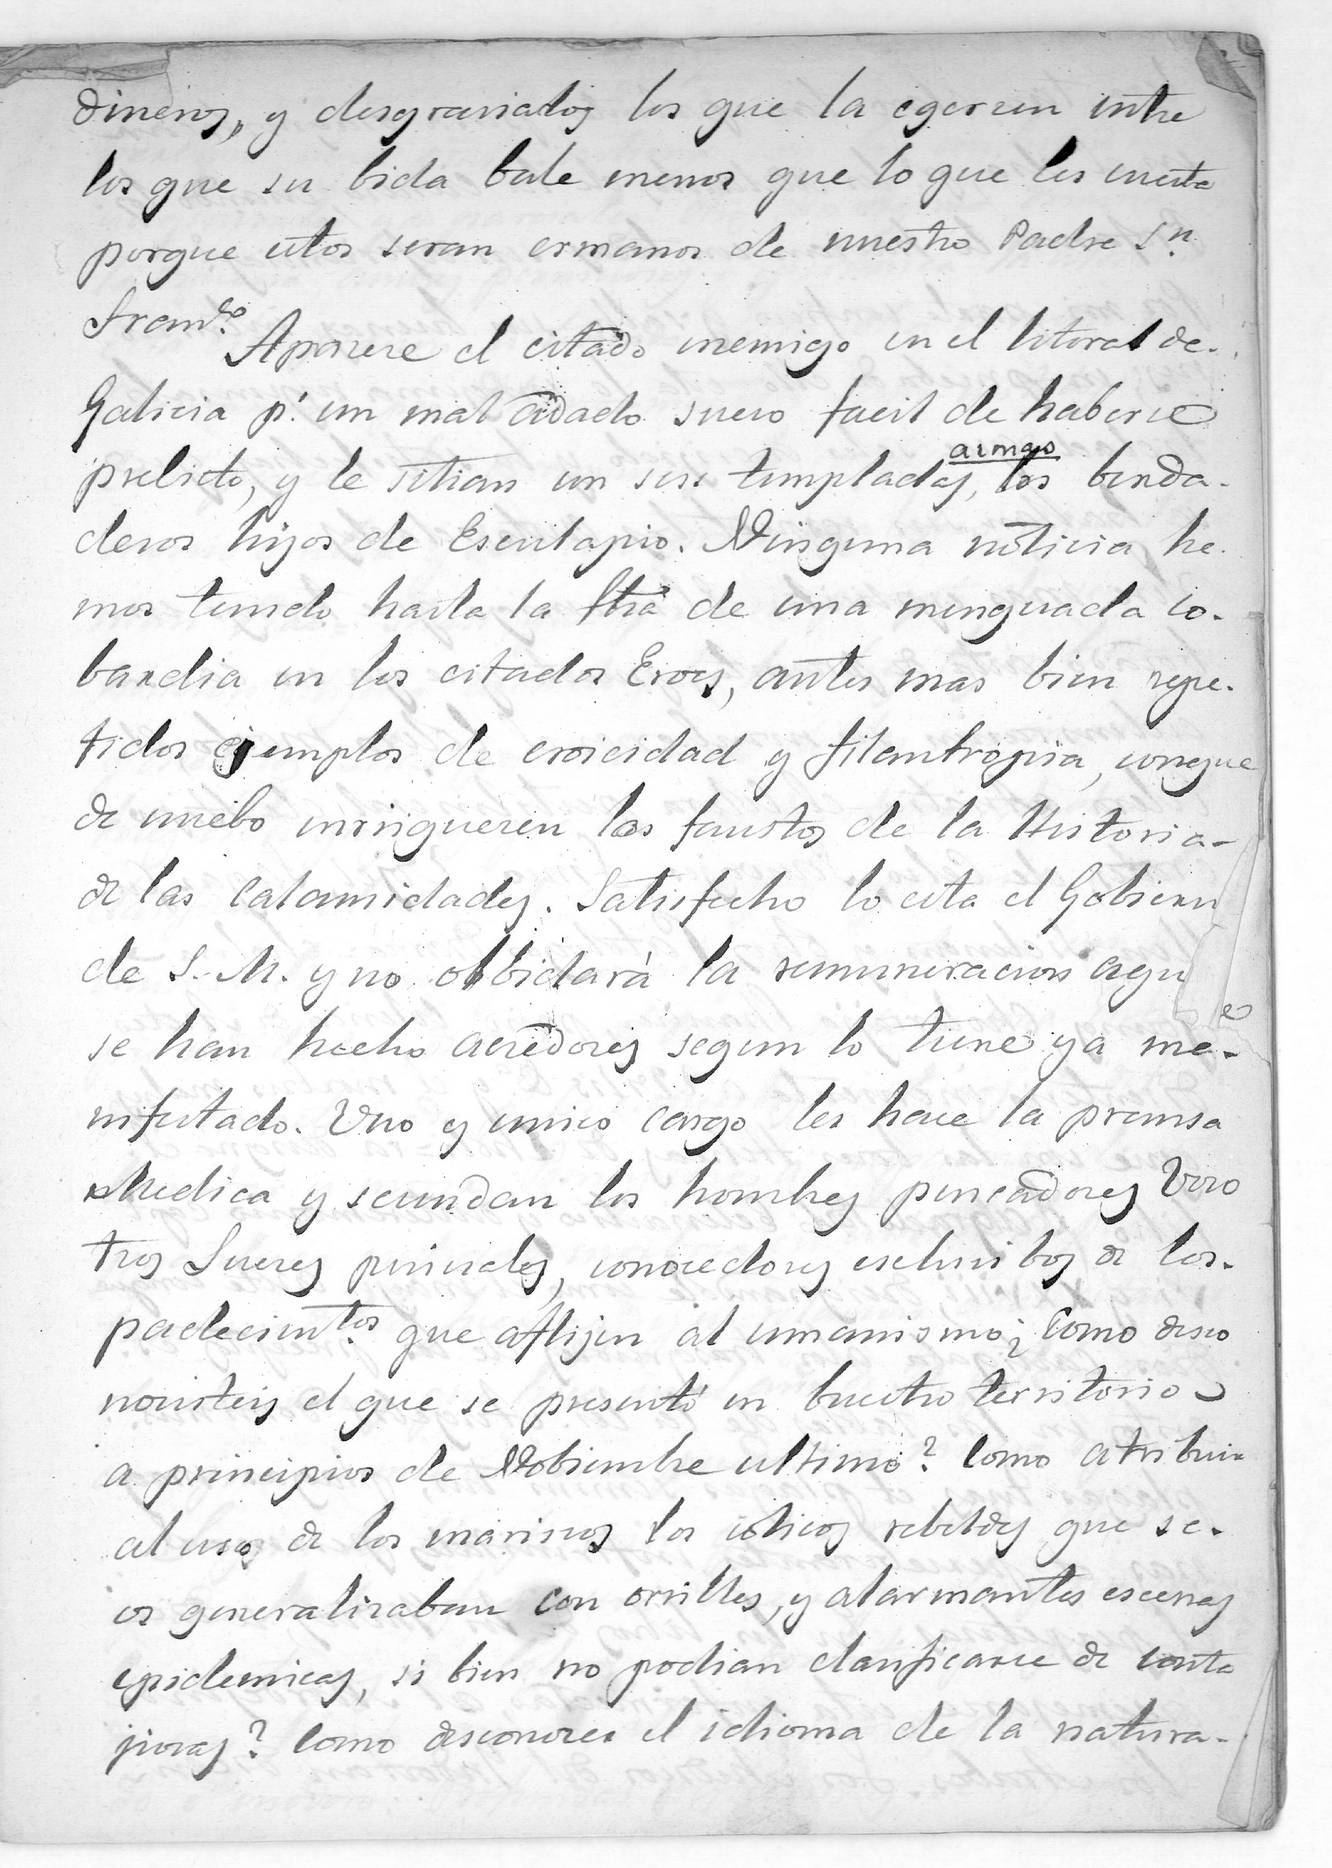 dineros, y desgraciados los que la egercen entre
los que su bida bale menos que lo que les cuesta
porque estos seran ermanos de nuestro Padre Sn.
Francco.
Aparece el citado enemigo en el litoral de
Galicia pr. un mal suceso facil de haberse
predicto, y le sitian con sus templadas armas los berda-
deros hijos de Esculapio. Ninguna noticia he-
mos tenido hasta la fha de una menguada co-
bardia en los citados Eroes, antes mas bien repe-
tidos ejemplos de eroicidad y filantropia, conque
de nuebo enrriquecen los faustos de la Historia
de las Calamidades. Satisfecho lo esta el Gobiern
de S. M. y no olbidará la remuneracion aqu
e
se han hecho acredores segun lo tiene ya ma-
nifestado. Uno y unico cargo les hace la prensa
Medica y secundan los hombres pensadores Voso
tros Jueces periciales, conocedores esclusibos de los
padecimtos. que aflijen al umanismo ¿Como desco
nocisteis el que se presentó en buestro territorio
a principios de Nobiembre ultimo? Como atribuir
al uso de los mariscos los colicos rebeldes que se
os generalizaban con orribles, y alarmantes escenas
epidemicas, si bien no podian clarificarse de conta
jiosas? Como desconocer el idioma de la natura-